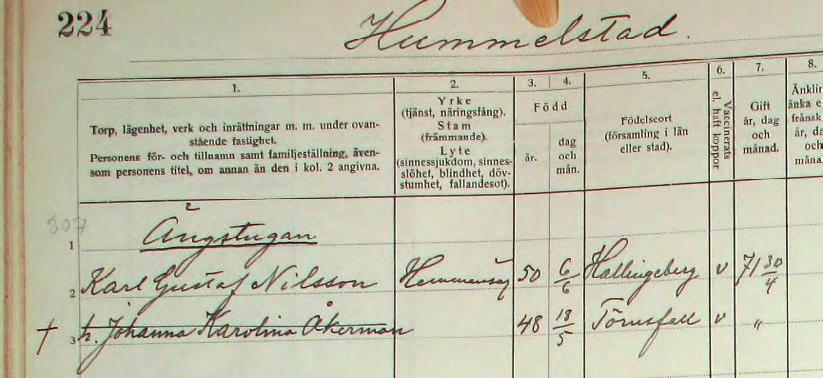 224
Hummelstad.
1. 2. 3. 4. 5. 6. 7. 8.
Torp, lägenhet, verk och inrättningar m. m. under ovan-
stående fastighet.
Personens för- och tillnamn samt familjeställning, även-
som personens titel, om annan än den i kol. 2 angivna.
Yrke
(tjänst, näringsfång).
Stam
(främmande).
Lyte
(sinnessjukdom, sinnes-
slöhet, blindhet, döv-
stumhet, fallandesot).
Född
år.
dag
och
mån.
Födelseort
(församling i län
eller stad).
Vaccinerats
el. haft koppor
Gift
år, dag
och
månad.
Änklin
änka e
frånsk
år, da
och
måna
307
2
1 Ängstugan
2 Karl Gustaf Nilsson Hemmansäg 50 6/6 Hallingeberg v 71 30/4
† 3 h. Johanna Karolina Åkerman 48 18/5 Törnsfall v "